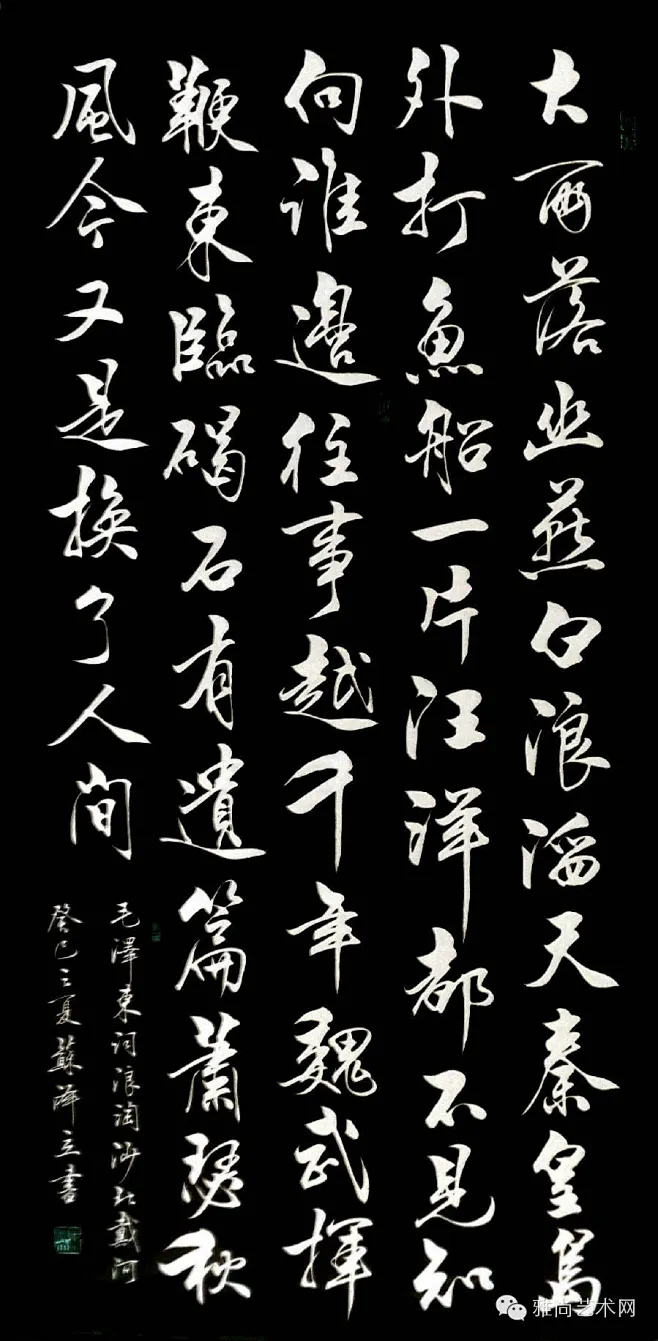 大雨落幽燕白浪滔天秦皇島
外打魚船一片汪洋都不見知
向誰邊往事越千年魏武揮
鞭東臨碣石有遺篇蕭瑟秋
風今又是換了人间
毛澤東詞浪淘沙北戴河
癸巳之夏蘇澤立書
雅尚艺术网